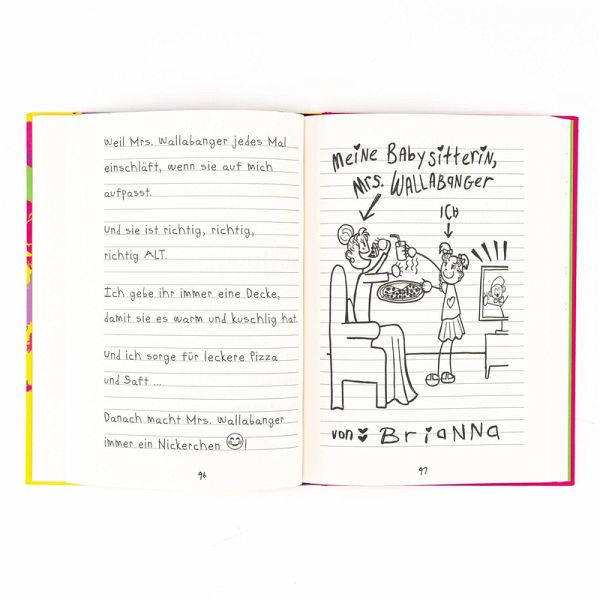 Weil Mrs. Wallabanger jedes Mal
einschläft, wenn sie auf mich
aufpasst.
Und sie ist richtig, richtig,
richtig ALT.
Ich gebe ihr immer eine Decke,
damit sie es warm und kuschlig hat.
Und ich sorge für leckere Pizza
und Saft ...
Danach macht Mrs. Wallabanger
immer ein Nickerchen 😊!
96
Meine Babysitterin,
Mrs. WALLABANGER
ICH
von BriANNA
97